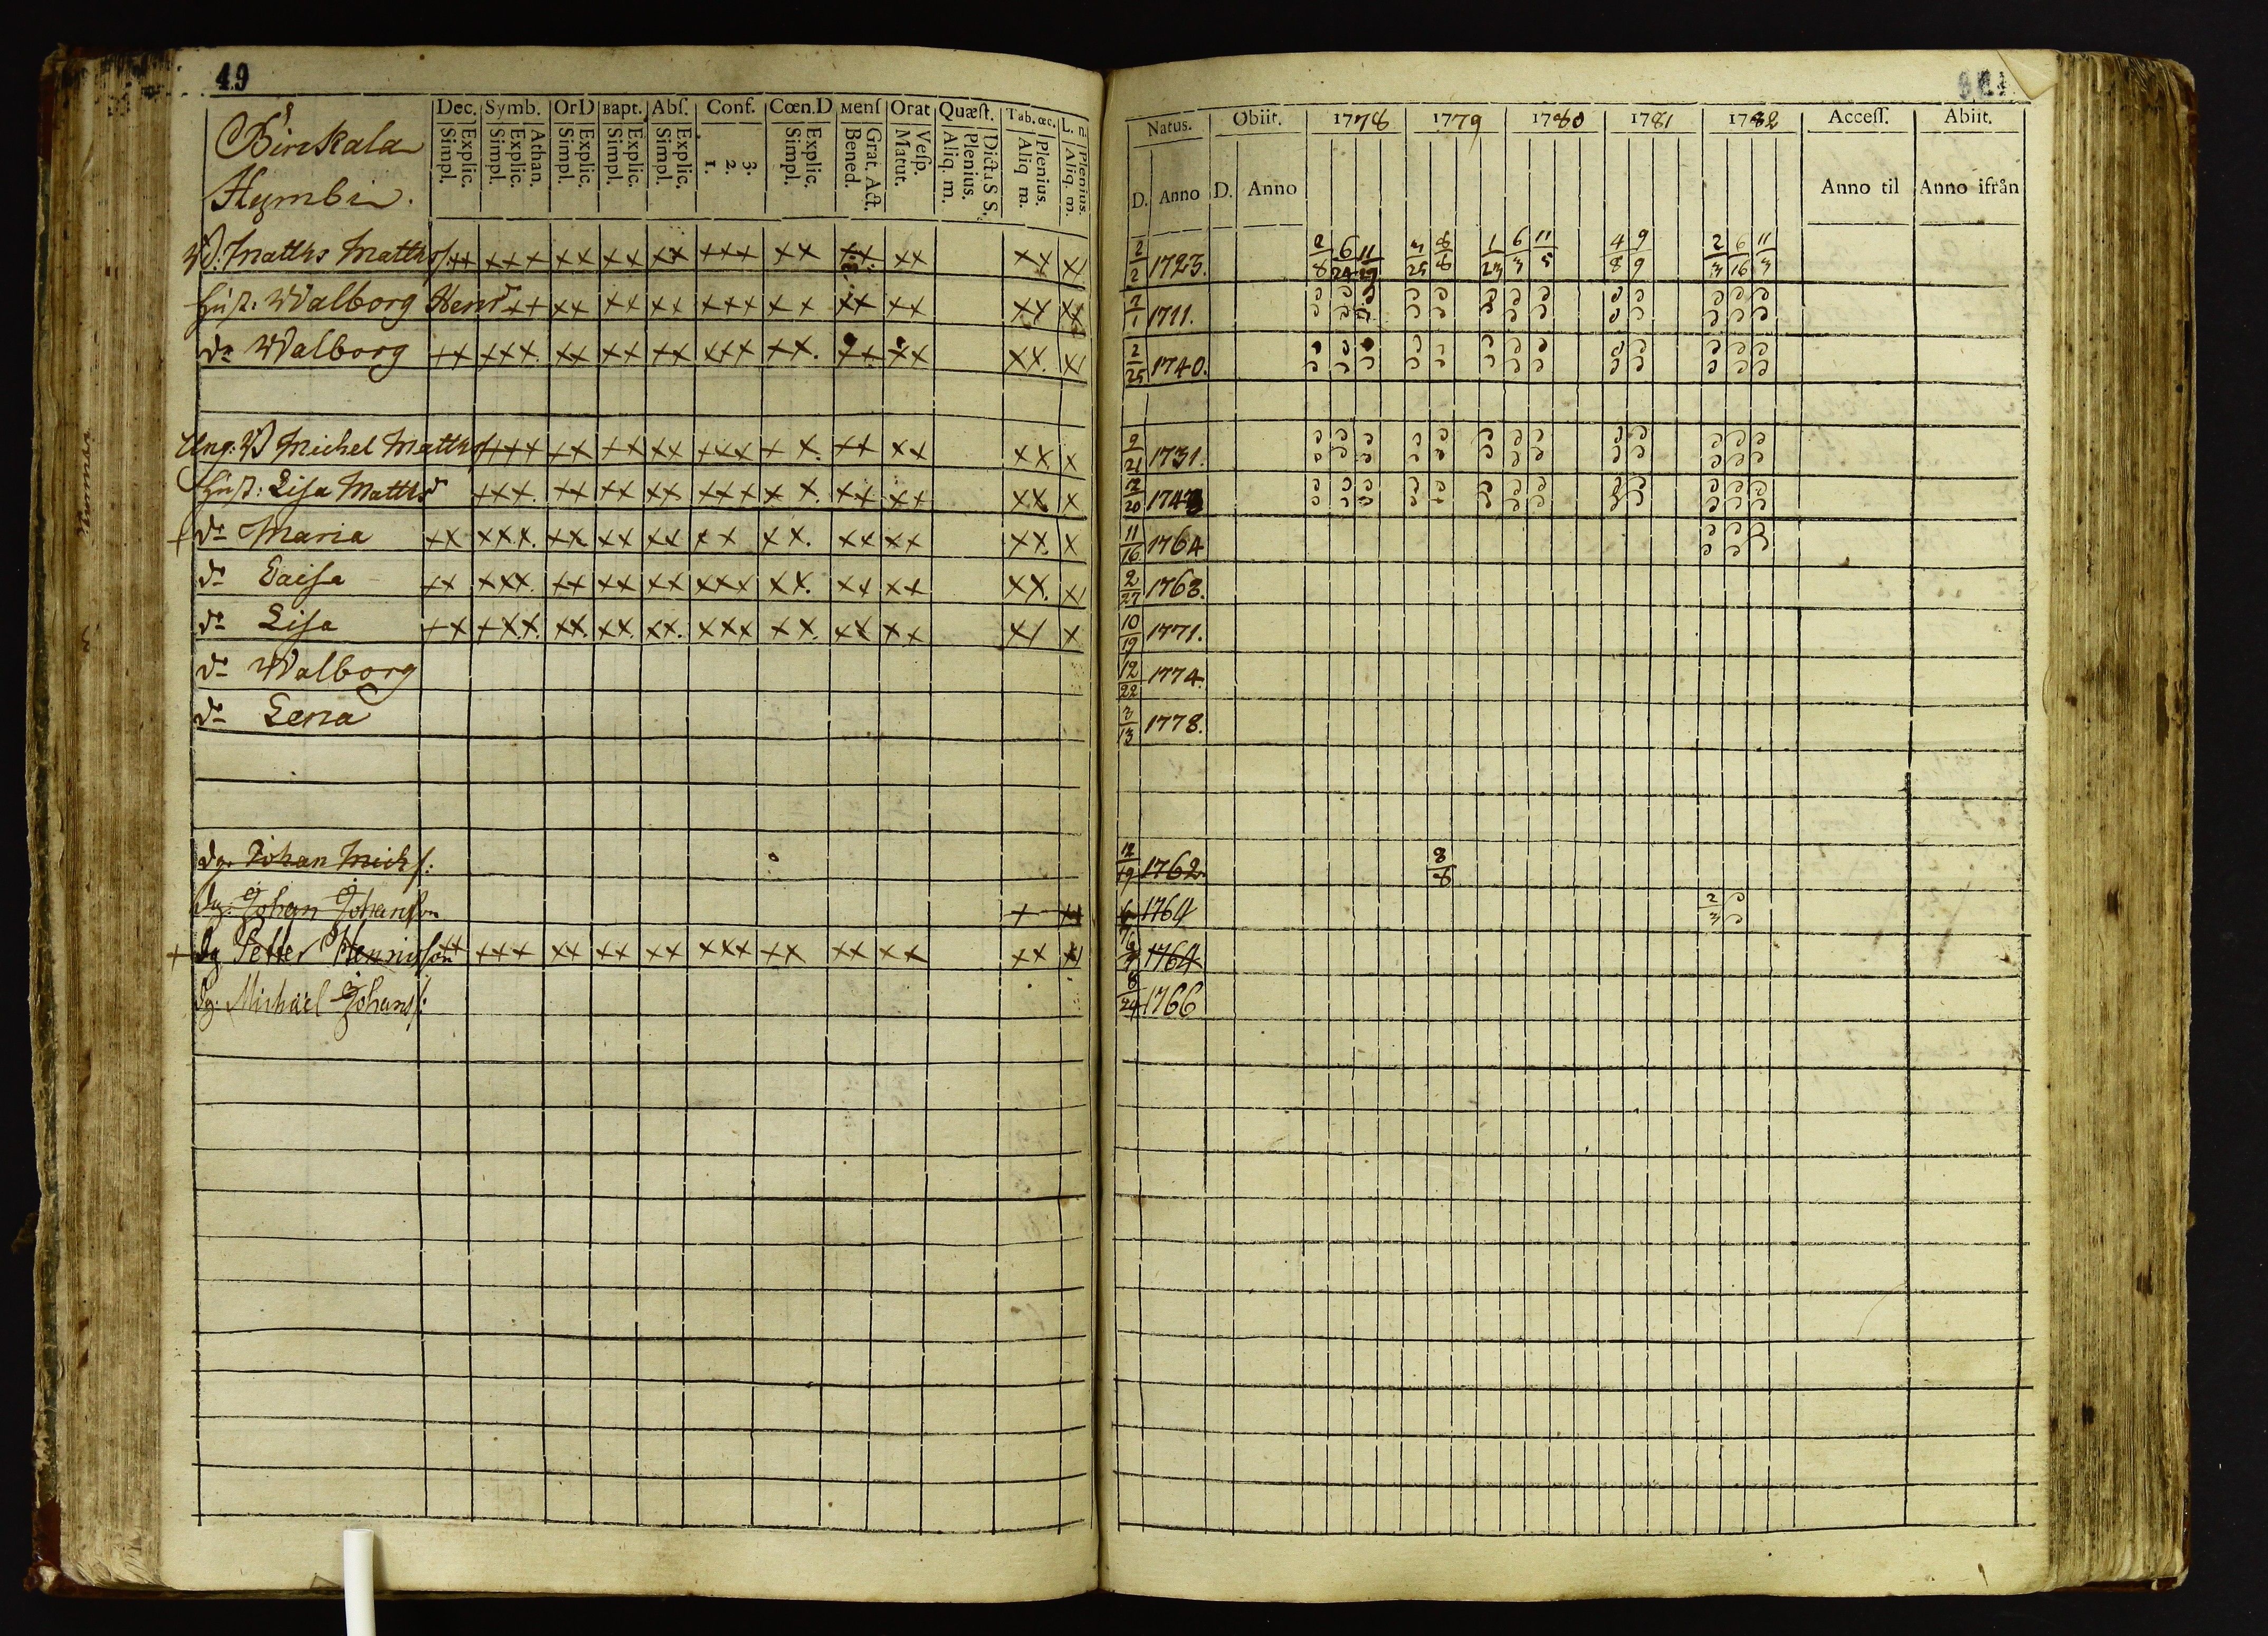 49
Birckala
Hymbin.
Dec. Symb. OrD Bapt. Abſ. Conf. Cœn.D Menſ Orat Quæſt. Tab. œc. L. n.
Explic. Simpl. Athan. Explic. Simpl. Explic. Simpl. Explic. Simpl. Explic. Simpl. 3. 2. 1. Explic. Simpl. Grat. Act. Bened. Veſp. Matut. Dicta S S. Plenius. Aliq. m. Plenius. Aliq m. Plenius. Aliq. m.
Natus. Obiit. 1778 1779 1780 1781 1782 Acceſſ. Abiit.
D. Anno D. Anno Anno til Anno ifrån
Matths Matthsſ: xx xxx xx xx xx xxx xx xx xx xx x 2/2 1723. 2/8 6/24 11/29 3/25 8/8 1/23 6/3 11/5 4/8 9/9 2/3 6/16 11/3
Huſt: Walborg Henrd xx xx xx xx xxx xx xx xx xx xx 1711.
dr Walborg xx xxx. xx xx xx xxx xx. xx xx xx. x 2/25 1740.
Ung. Michel Matthsſ xxx xx xx xx xxx x x. xx xx xx x 9/21 1731.
Huſt: Liſa Matthsd xxx. xx xx xx xxx x x. xx xx xx x 12/20
+ dr Maria xx xxx. xx xx xx xx xx. xx xx xx. x 11/16 1764
dr Caiſa xx xxx. xx xx xx xxx xx. xx xx xx. x 2/27 1768.
dr Liſa xx xxx. xx. xx. xx. xxx xx. xx xx xx x 10/19 1771.
dr Walborg 12/22 1774.
dr Lena 3/13 1778.
dg. Johan Michſ: 12/19 1762. 8/8
dg. Johan Johanſson x xx 1764 2/3
+ dg Petter Henricſson xx xxx xx xx xx xxx xx xx xx xx x 1764
dg. Michäel Johansſ: 8/24 1766